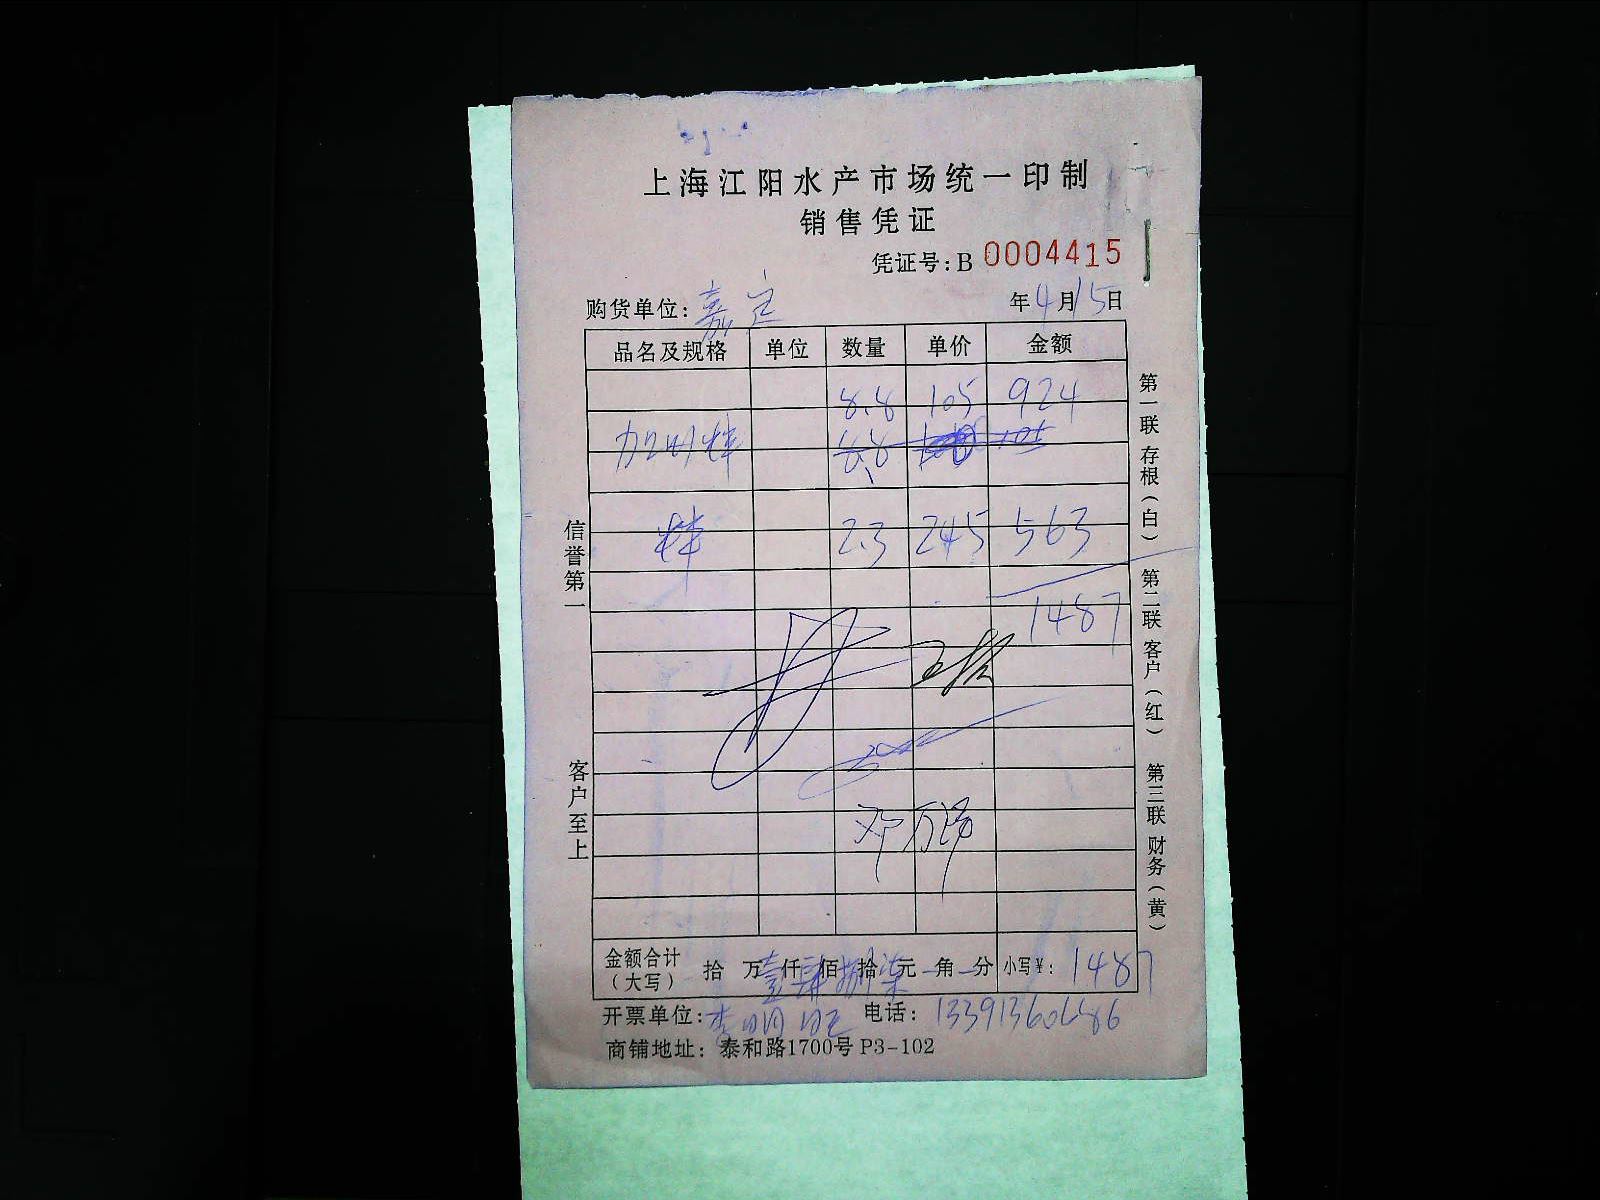 上海江阳水产市场统一印制
销售凭证
凭证号:B 0004415
购货单位: 嘉定 年4月15日
品名及规格 单位 数量 单价 金额
8.8 105 924
8.8
2.3 245 563
1487
金额合计(大写) 拾万壹仟肆佰捌拾柒元角分 小写¥: 1487
开票单位: 李明旺 电话: 13391360686
商铺地址: 泰和路1700号 P3-102
信誉第一
客户至上
第一联 存根(白) 第二联 客户(红) 第三联 财务(黄)